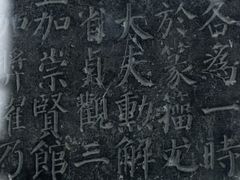 各為一時
於篆籀尤
大夫勲解
省貞觀三
加崇賢館
將擢乃